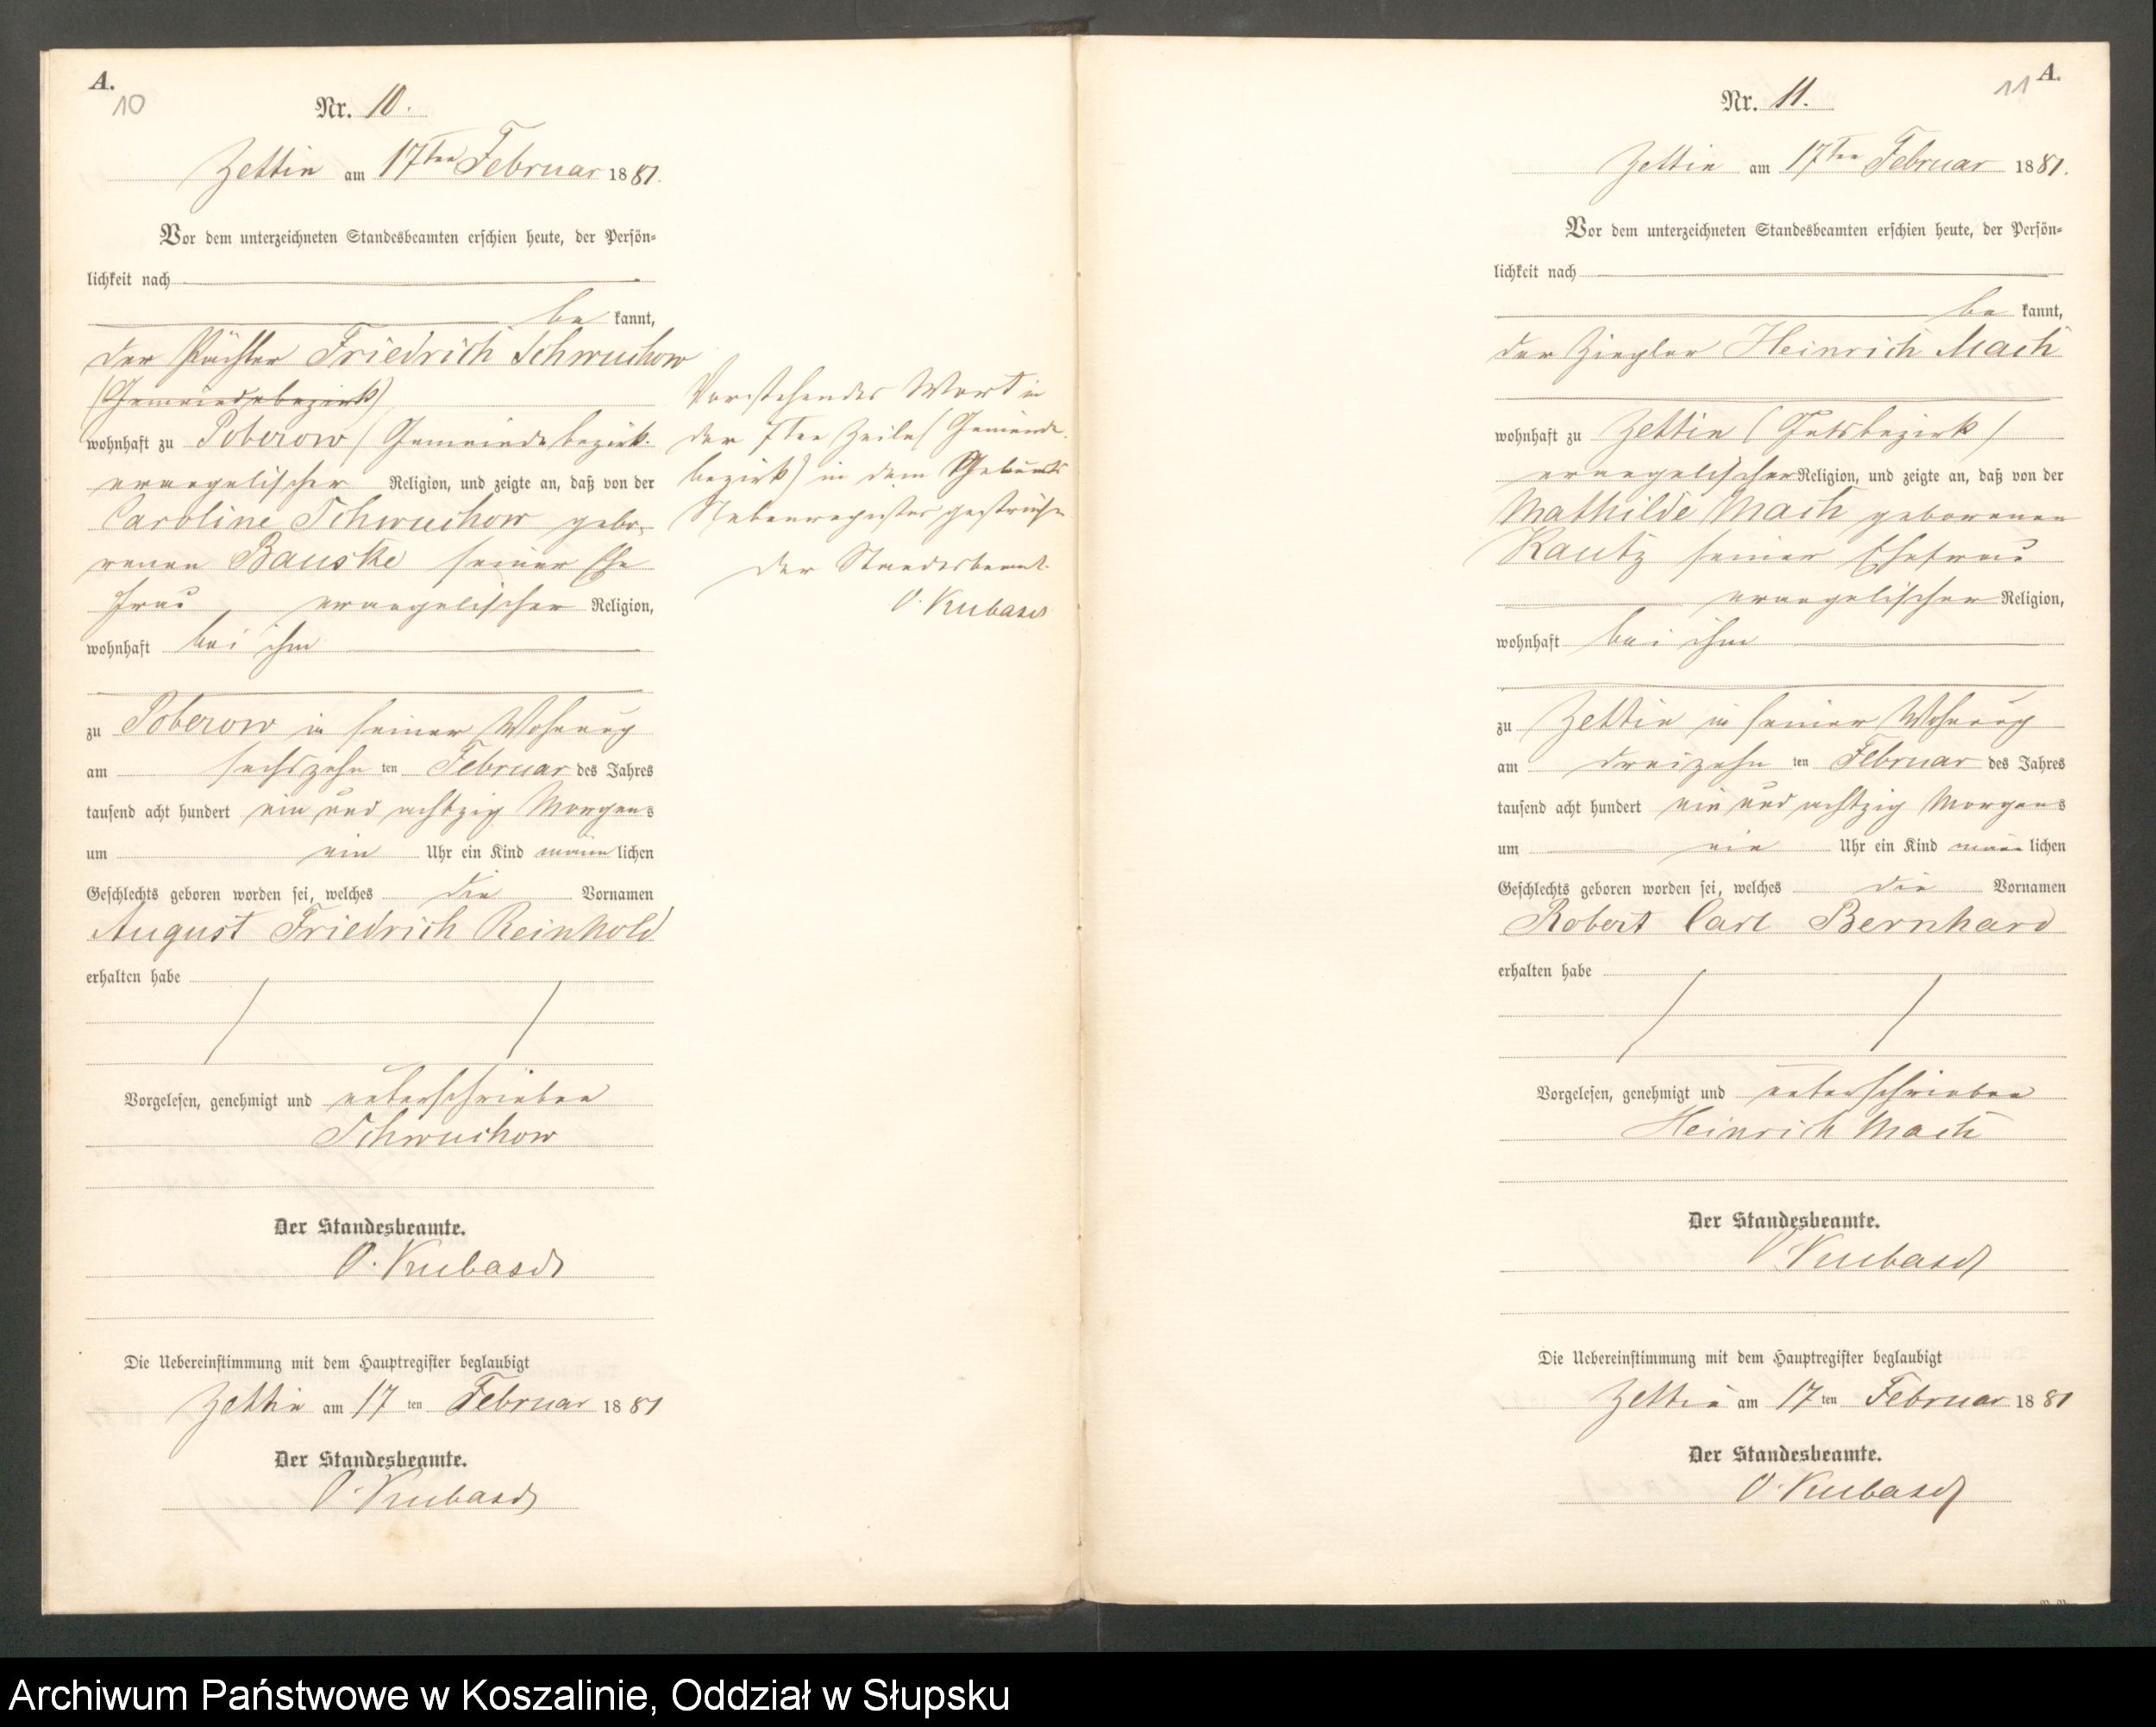 A.
10
Nr. 10.
Zettin am 17ten Februar 1881.
Vor dem unterzeichneten Standesbeamten erschien heute, der Persön-
lichkeit nach
be kannt,
der Pächter Friedrich Schwuchow
(Gemeindebezirk)
wohnhaft zu Poberow (Gemeindebezirk.
evangelischer Religion, und zeigte an, daß von der
Caroline Schwuchow gebo-
renen Bauske seiner Ehe
frau, evangelischer Religion,
wohnhaft bei ihm
zu Poberow in seiner Wohnung
am sechszehn ten Februar des Jahres
tausend acht hundert ein und achtzig Morgens
um ein Uhr ein Kind männ lichen
Geschlechts geboren worden sei, welches die Vornamen
August Friedrich Reinhold
erhalten habe
Vorgelesen, genehmigt und unterschrieben
Schwuchow
Der Standesbeamte.
O. Kubasch
Die Uebereinstimmung mit dem Hauptregister beglaubigt
Zettin am 17 ten Februar 1881
Der Standesbeamte.
O. Kubasch
Vorstehendes Wort in
der 7ten Zeile (Gemeinde-
bezirk) in dem Geburts
Nebenregister gestrichen
Der Standesbeamt.
O. Kubasch
A.
11
Nr. 11.
Zettin am 17ten Februar 1881.
Vor dem unterzeichneten Standesbeamten erschien heute, der Persön-
lichkeit nach
be kannt,
der Ziegler Heinrich Mach
wohnhaft zu Zettin (Gutsbezirk)
evangelischer Religion, und zeigte an, daß von der
Mathilde Mach geborenen
Kautz seiner Ehefrau
evangelischer Religion,
wohnhaft bei ihm
zu Zettin in seiner Wohnung
am dreizehn ten Februar des Jahres
tausend acht hundert ein und achtzig Morgens
um ein Uhr ein Kind männ lichen
Geschlechts geboren worden sei, welches die Vornamen
Robert Carl Bernhard
erhalten habe
Vorgelesen, genehmigt und unterschrieben
Heinrich Mach
Der Standesbeamte.
O. Kubasch
Die Uebereinstimmung mit dem Hauptregister beglaubigt
Zettin am 17 ten Februar 1881
Der Standesbeamte.
O. Kubasch
Archiwum Państwowe w Koszalinie, Oddział w Słupsku